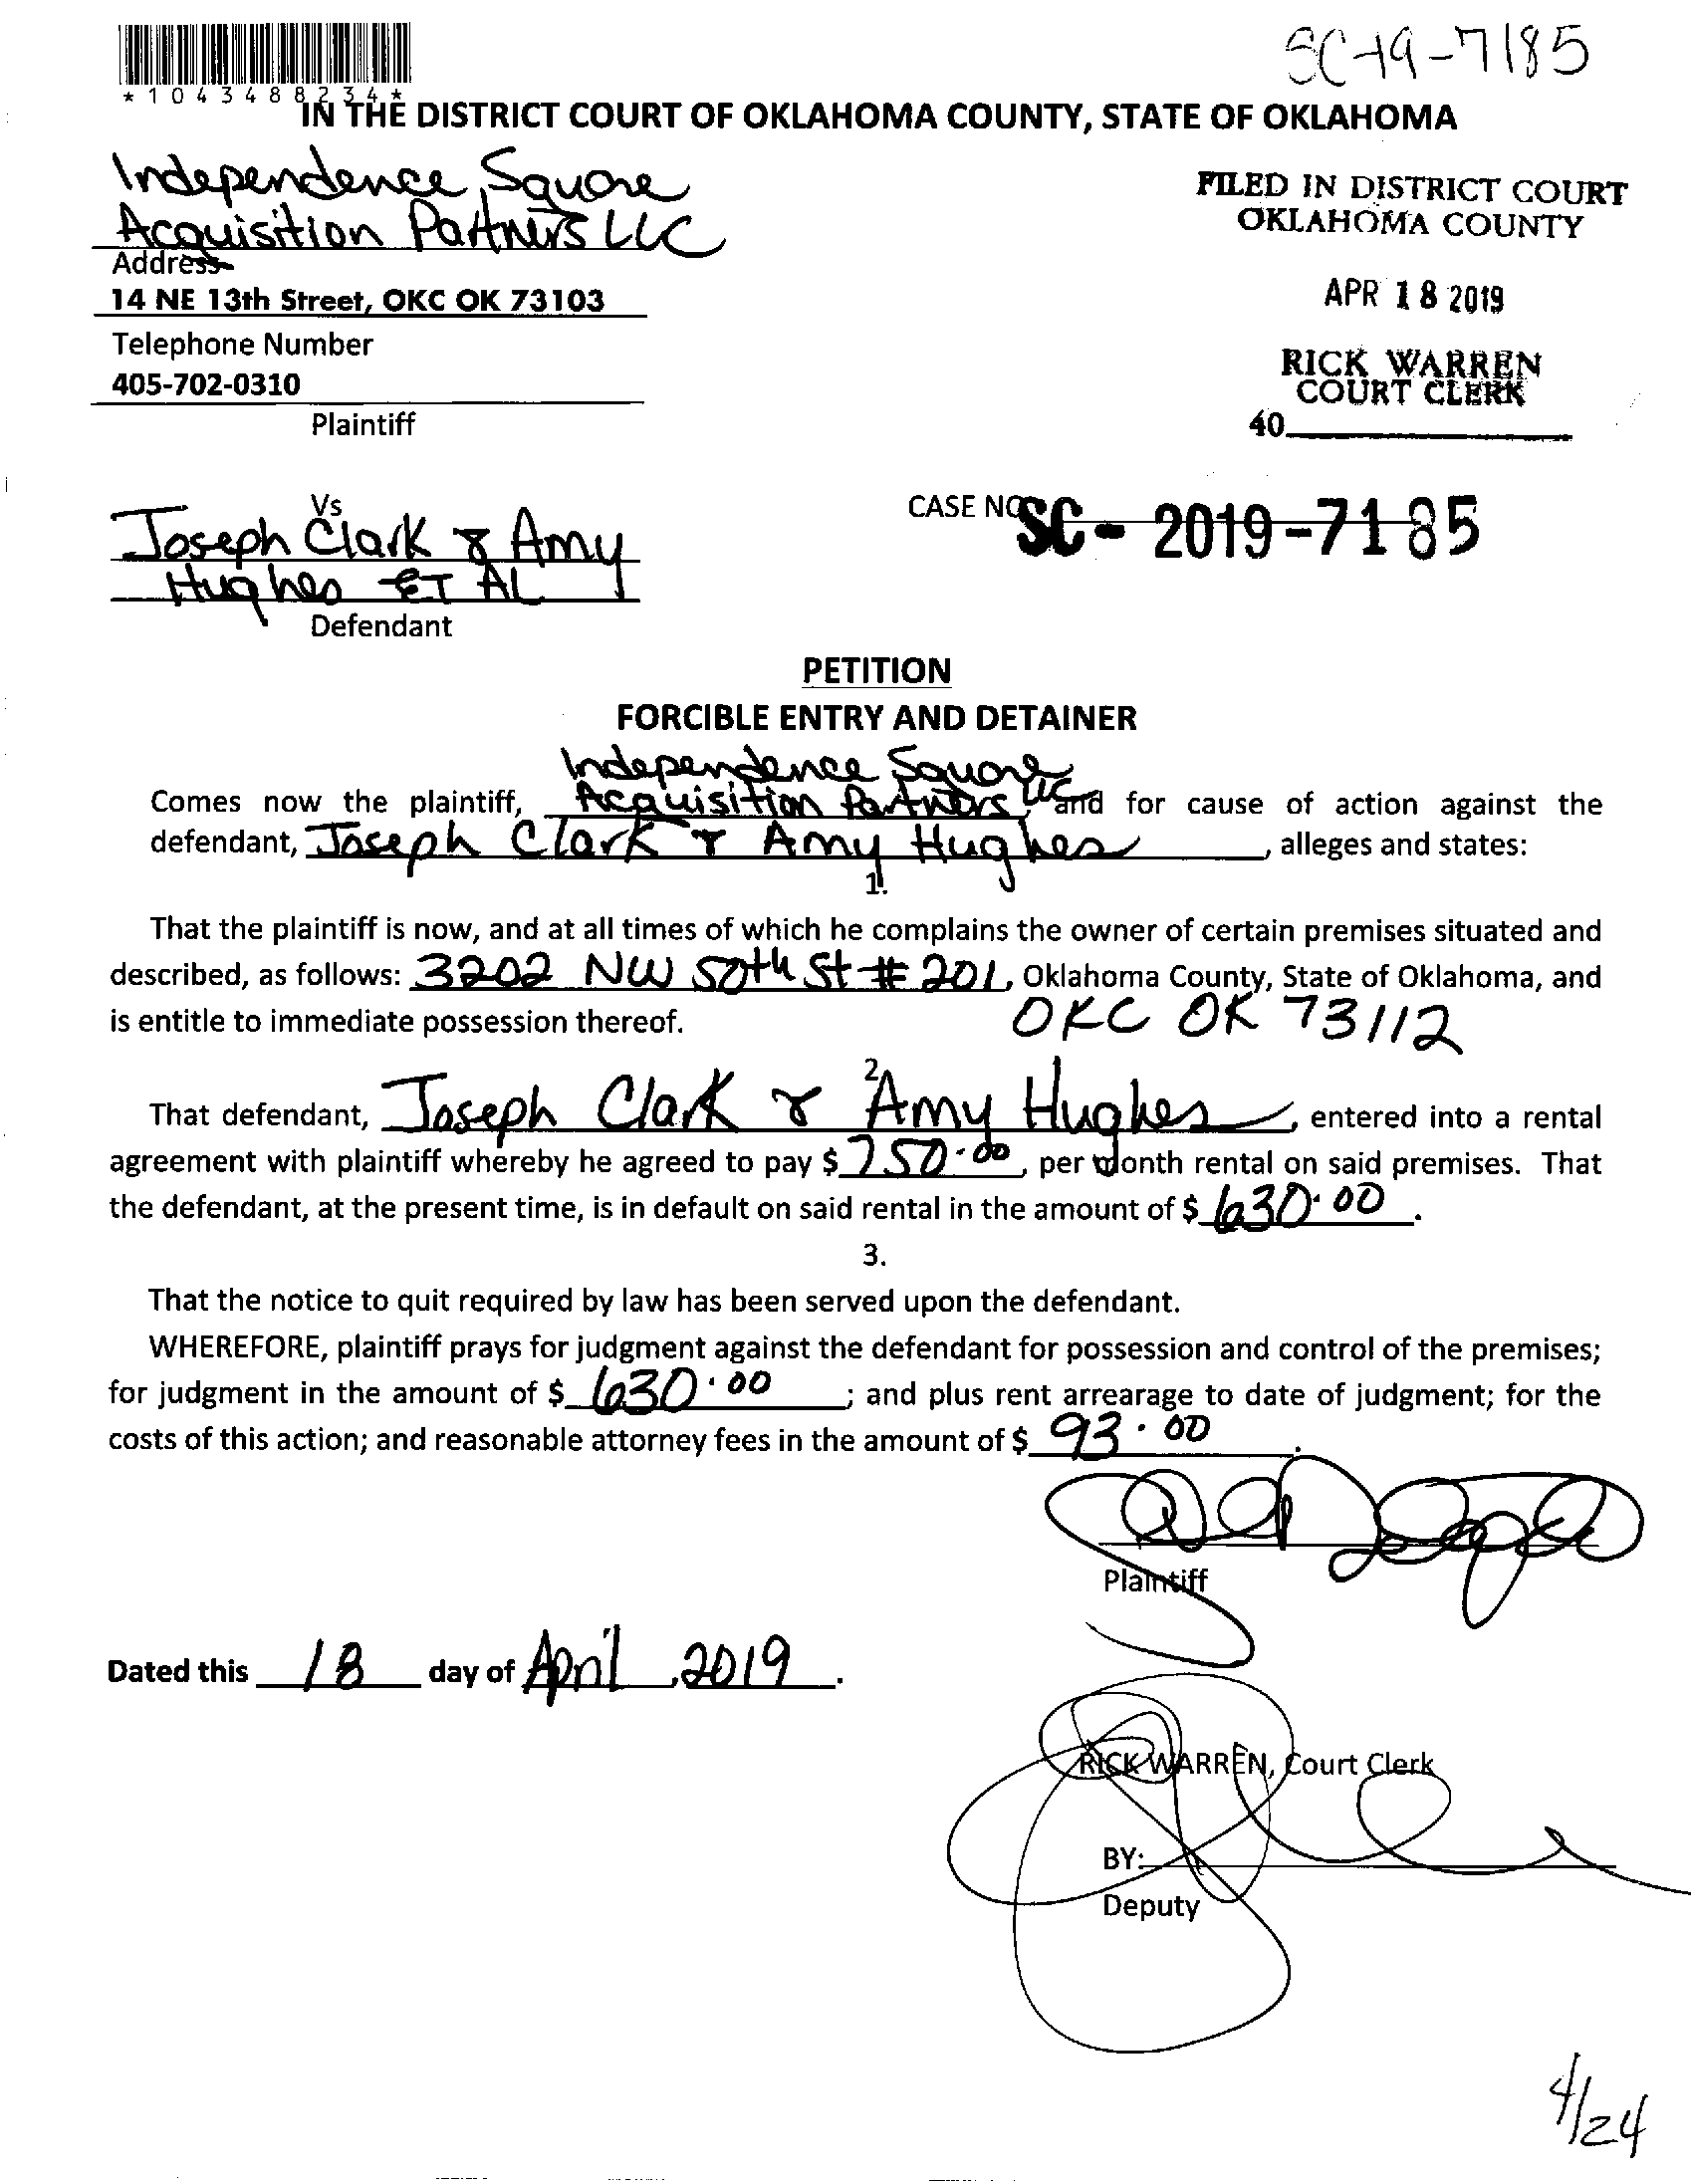 SC-19-7185
*1043488234*
IN THE DISTRICT COURT OF OKLAHOMA COUNTY, STATE OF OKLAHOMA
Independence Square
Acquisition Partners LLC
Address
14 NE 13th Street, OKC OK 73103
Telephone Number
405-702-0310
Plaintiff
FILED IN DISTRICT COURT
OKLAHOMA COUNTY
APR 18 2019
RICK WARREN
COURT CLERK
40
Vs
Joseph Clark & Amy
Hughes ET AL
Defendant
CASE NO SC - 2019-7185
PETITION
FORCIBLE ENTRY AND DETAINER
Independence Square
Comes now the plaintiff, Acquisition Partners LLC, and for cause of action against the
defendant, Joseph Clark & Amy Hughes, alleges and states:
1.
That the plaintiff is now, and at all times of which he complains the owner of certain premises situated and
described, as follows: 3202 NW 50th St # 201, Oklahoma County, State of Oklahoma, and
is entitle to immediate possession thereof. OKC OK 73112
2.
That defendant, Joseph Clark & Amy Hughes, entered into a rental
agreement with plaintiff whereby he agreed to pay $ 750.00, per month rental on said premises. That
the defendant, at the present time, is in default on said rental in the amount of $ 630.00.
3.
That the notice to quit required by law has been served upon the defendant.
WHEREFORE, plaintiff prays for judgment against the defendant for possession and control of the premises;
for judgment in the amount of $ 630.00; and plus rent arrearage to date of judgment; for the
costs of this action; and reasonable attorney fees in the amount of $ 93.00.
Plaintiff
Dated this 18 day of April, 2019.
RICK WARREN, Court Clerk
BY:
Deputy
4/24